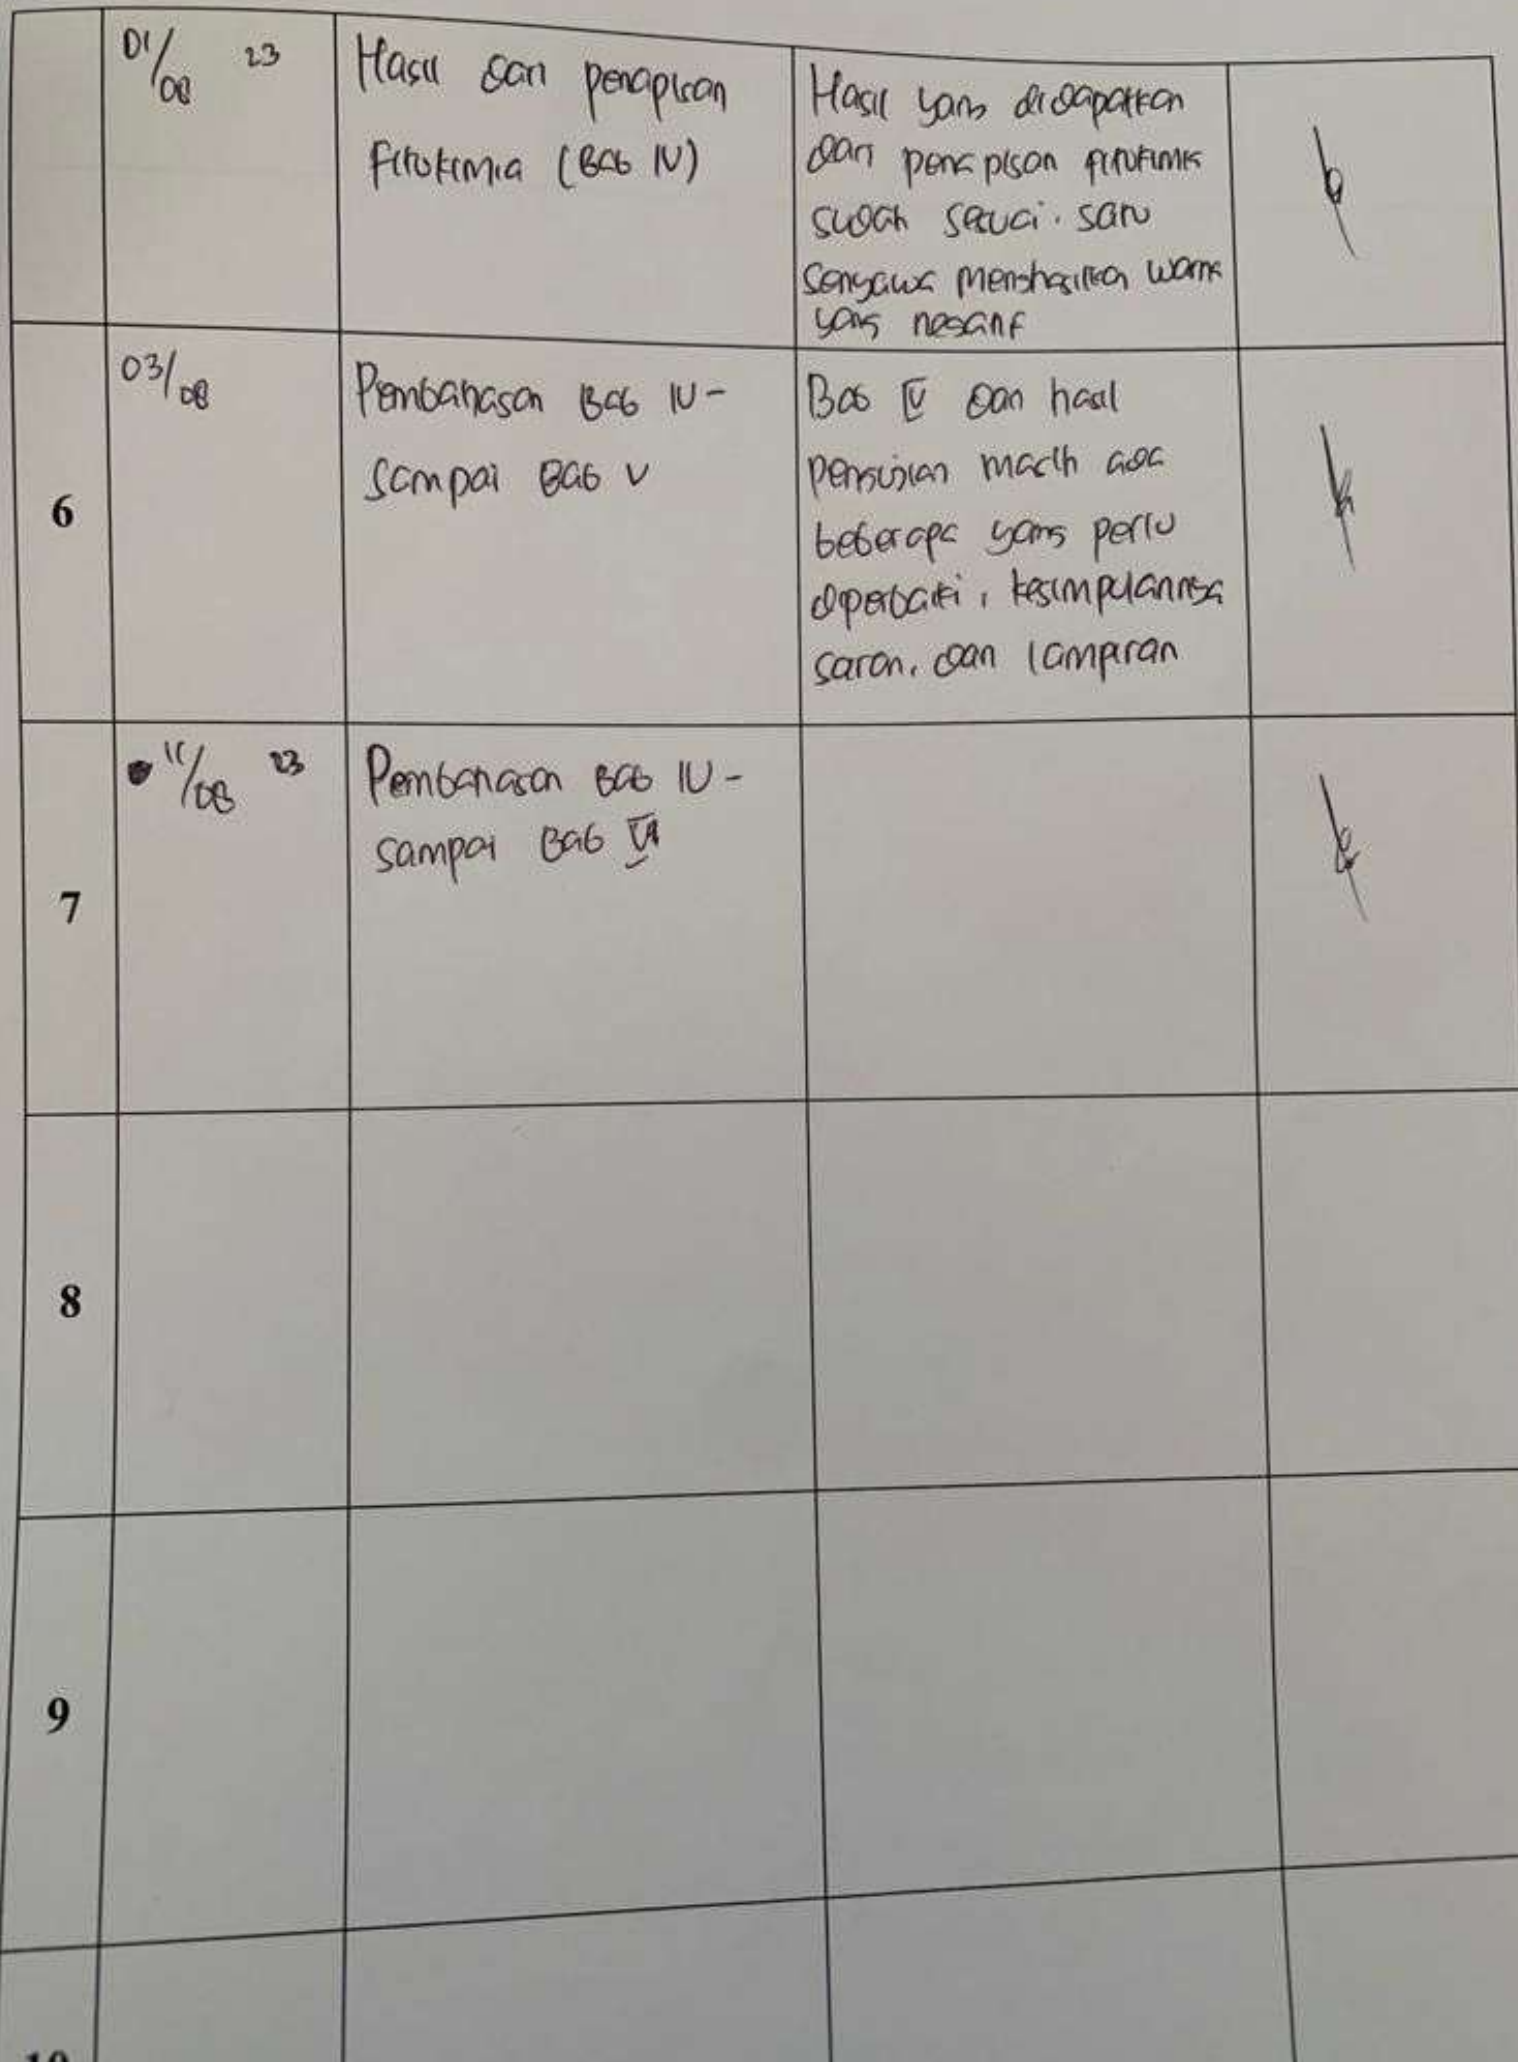 01/08 23
Hasil dari penapisan
fitokimia (Bab IV)
Hasil yang didapatkan
dari penapisan fitokimia
sudah sesuai. satu
senyawa menghasilkan warna
yang negatif
6
03/08
Pembahasan Bab IV-
sampai Bab V
Bab IV dan hasil
pengujian masih ada
beberapa yang perlu
diperbaiki, kesimpulannya
saran, dan lampiran
7
11/08 23
Pembahasan Bab IV-
sampai Bab VI
8
9
10